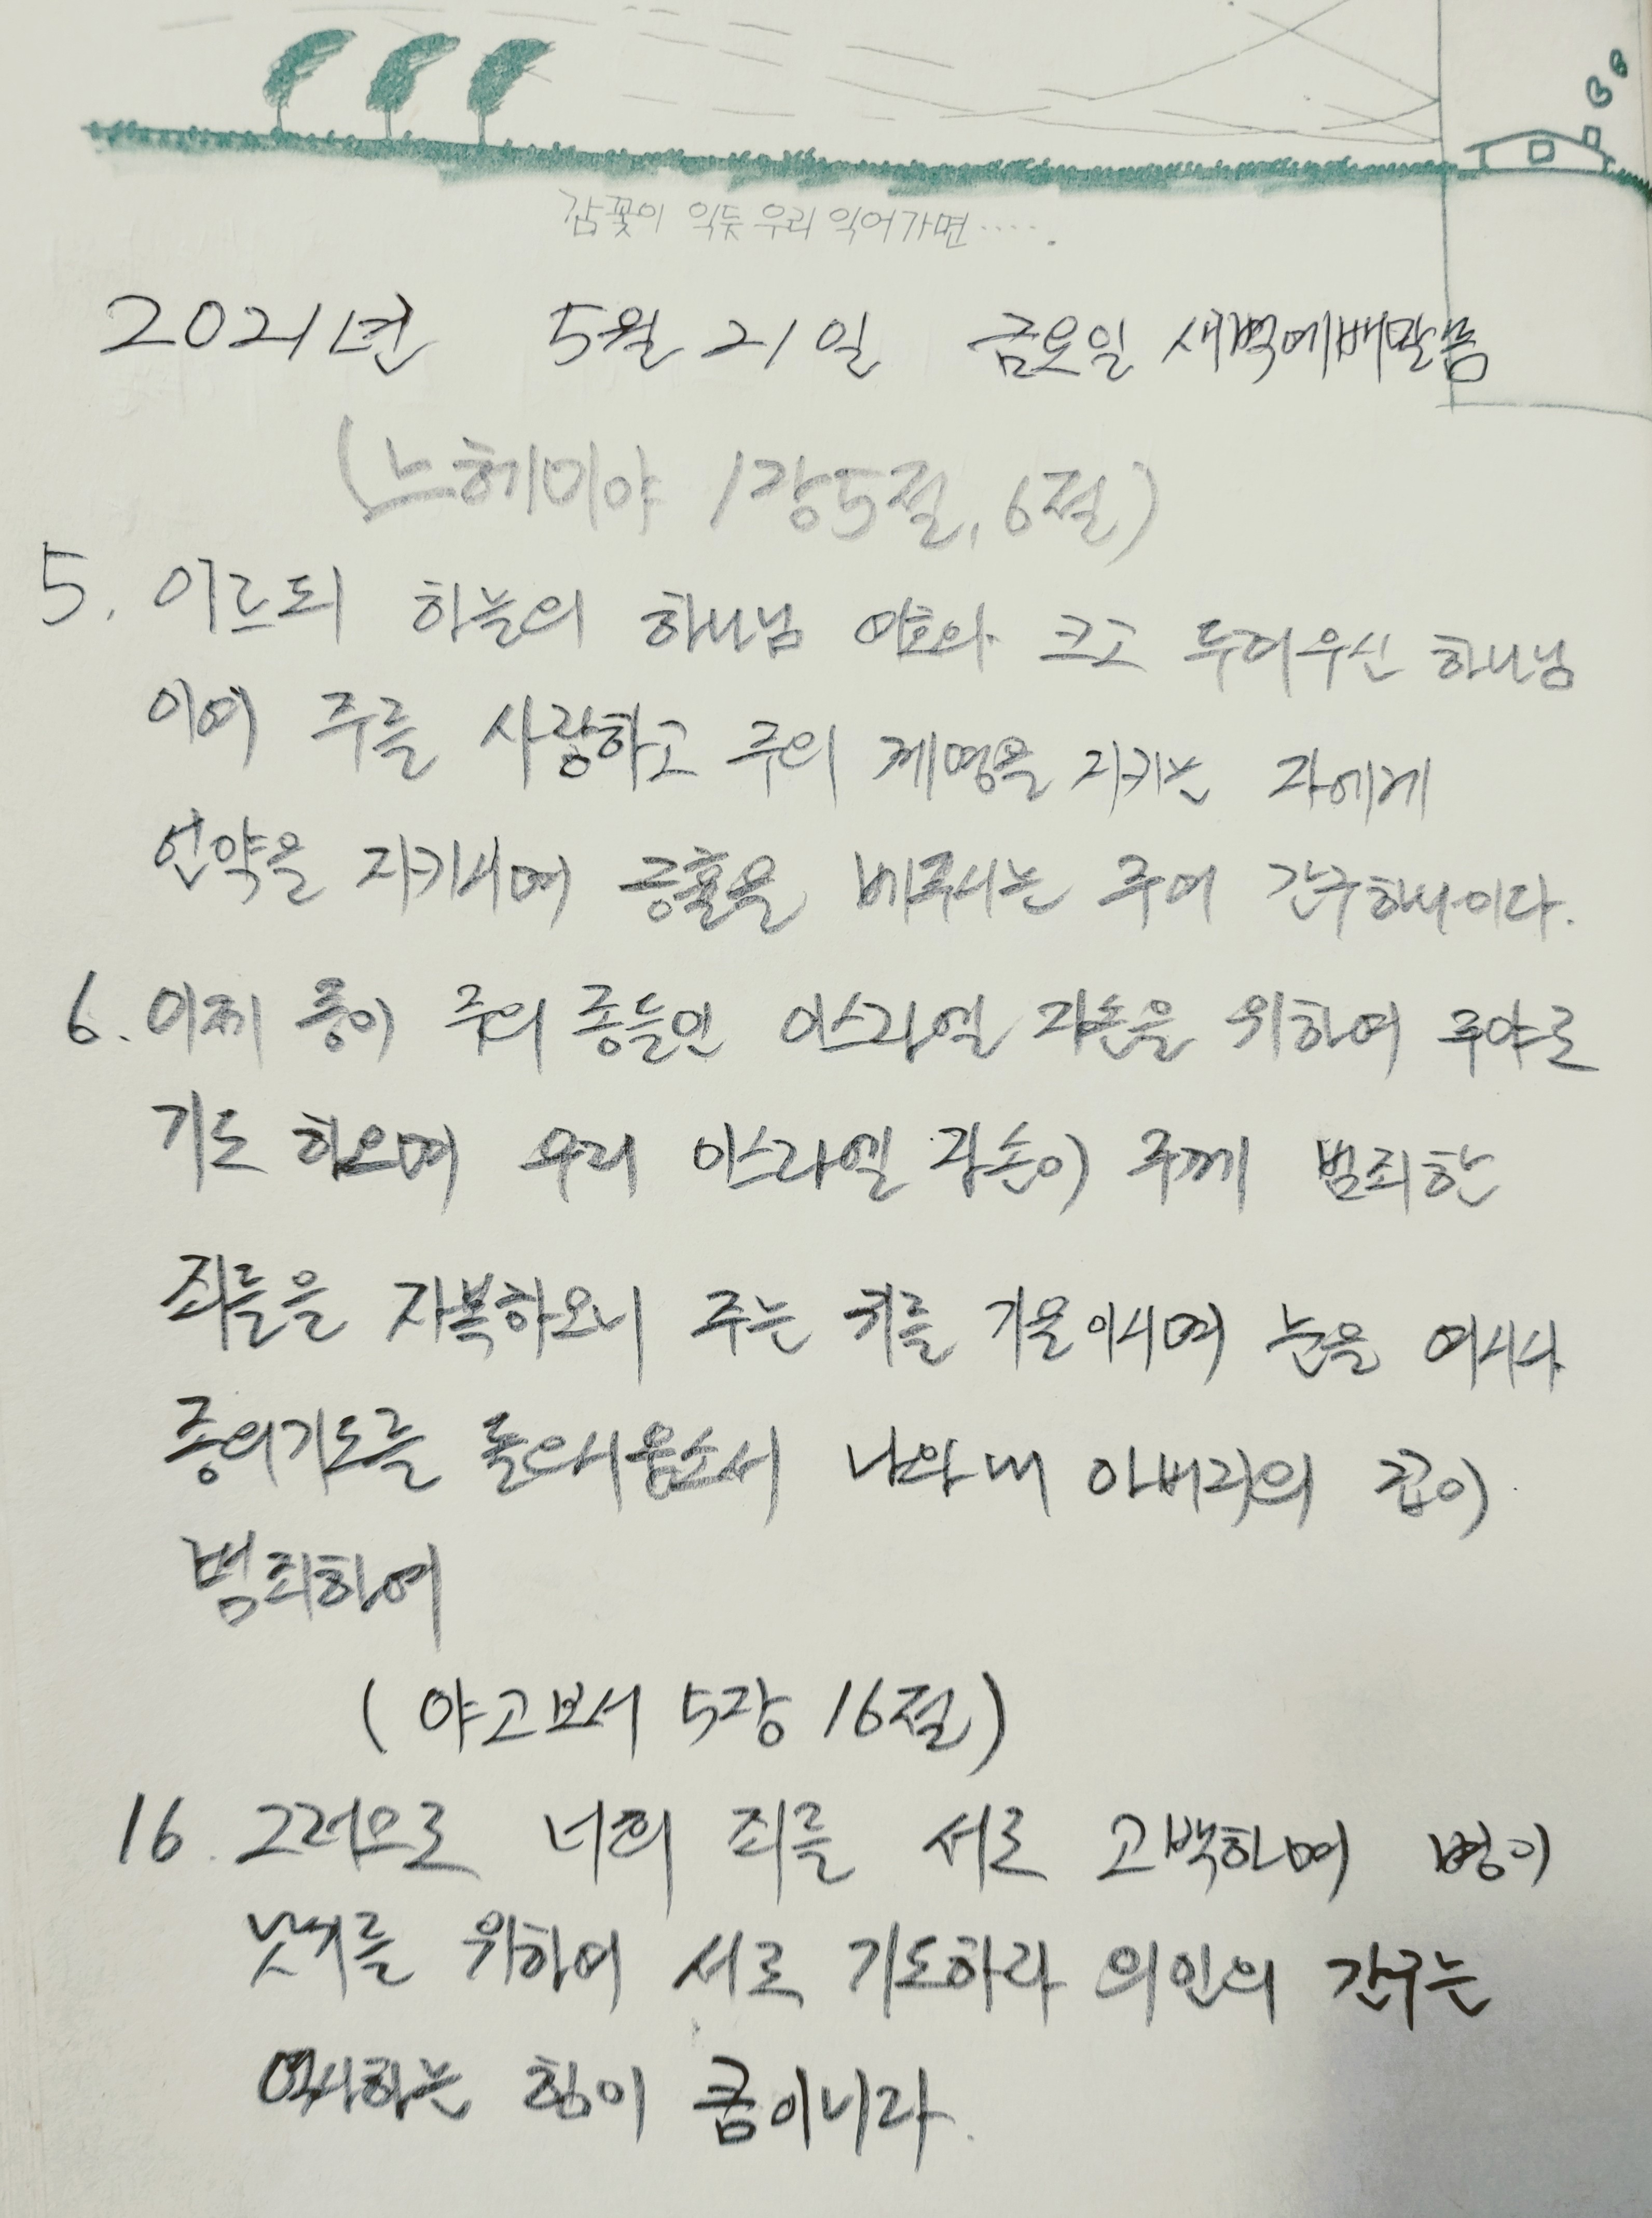 감꽃이 익듯 우리 익어가면…..
2021년 5월 21일 금요일 새벽예배말씀
(느헤미야 1장5절, 6절)
5. 이르되 하늘의 하나님 여호와 크고 두려우신 하나님
이여 주를 사랑하고 주의 계명을 지키는 자에게
언약을 지키시며 긍휼을 베푸시는 주여 간구하나이다.
6. 이제 종이 주의 종들인 이스라엘 자손을 위하여 주야로
기도 하오며 우리 이스라엘 자손이 주께 범죄한
죄들을 자복하오니 주는 귀를 기울이시며 눈을 여시사
종의기도를 들으시옵소서 나와 내 아버지의 집이
범죄하여
(야고보서 5장 16절)
16. 그러므로 너희 죄를 서로 고백하며 병이
낫기를 위하여 서로 기도하라 의인의 간구는
역사하는 힘이 큼이니라.